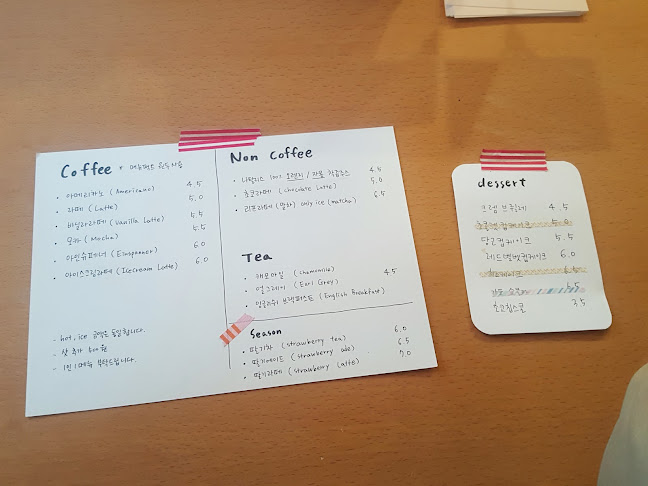 Coffee
아메리카노 (Americano) 4.5
라떼 (Latte) 5.0
바닐라라떼 (Vanilla Latte) 5.5
모카 (Mocha) 5.5
아인슈페너 (Einspanner) 6.0
아이스크림라떼 (Icecream Latte) 6.0
- hot, ice 금액은 동일합니다.
- 샷 추가 500원
- 1인 1메뉴 부탁드립니다.
Non Coffee
100% 오렌지 / 자몽 착즙주스 4.5
초코라떼 (chocolate Latte) 5.0
(말차) only ice (matcha) 6.5
Tea
캐모마일 (chamomile)
얼그레이 (Earl Grey) 4.5
잉글리쉬 브랙퍼스트 (English Breakfast)
Season
딸기차 (strawberry tea) 6.0
딸기에이드 (strawberry ade) 6.5
딸기라떼 (strawberry latte) 7.0
dessert
크렘 브륄레 4.5
5.0
당근컵케이크 5.5
레드벨벳컵케이크 6.0
초코칩스콘 3.5